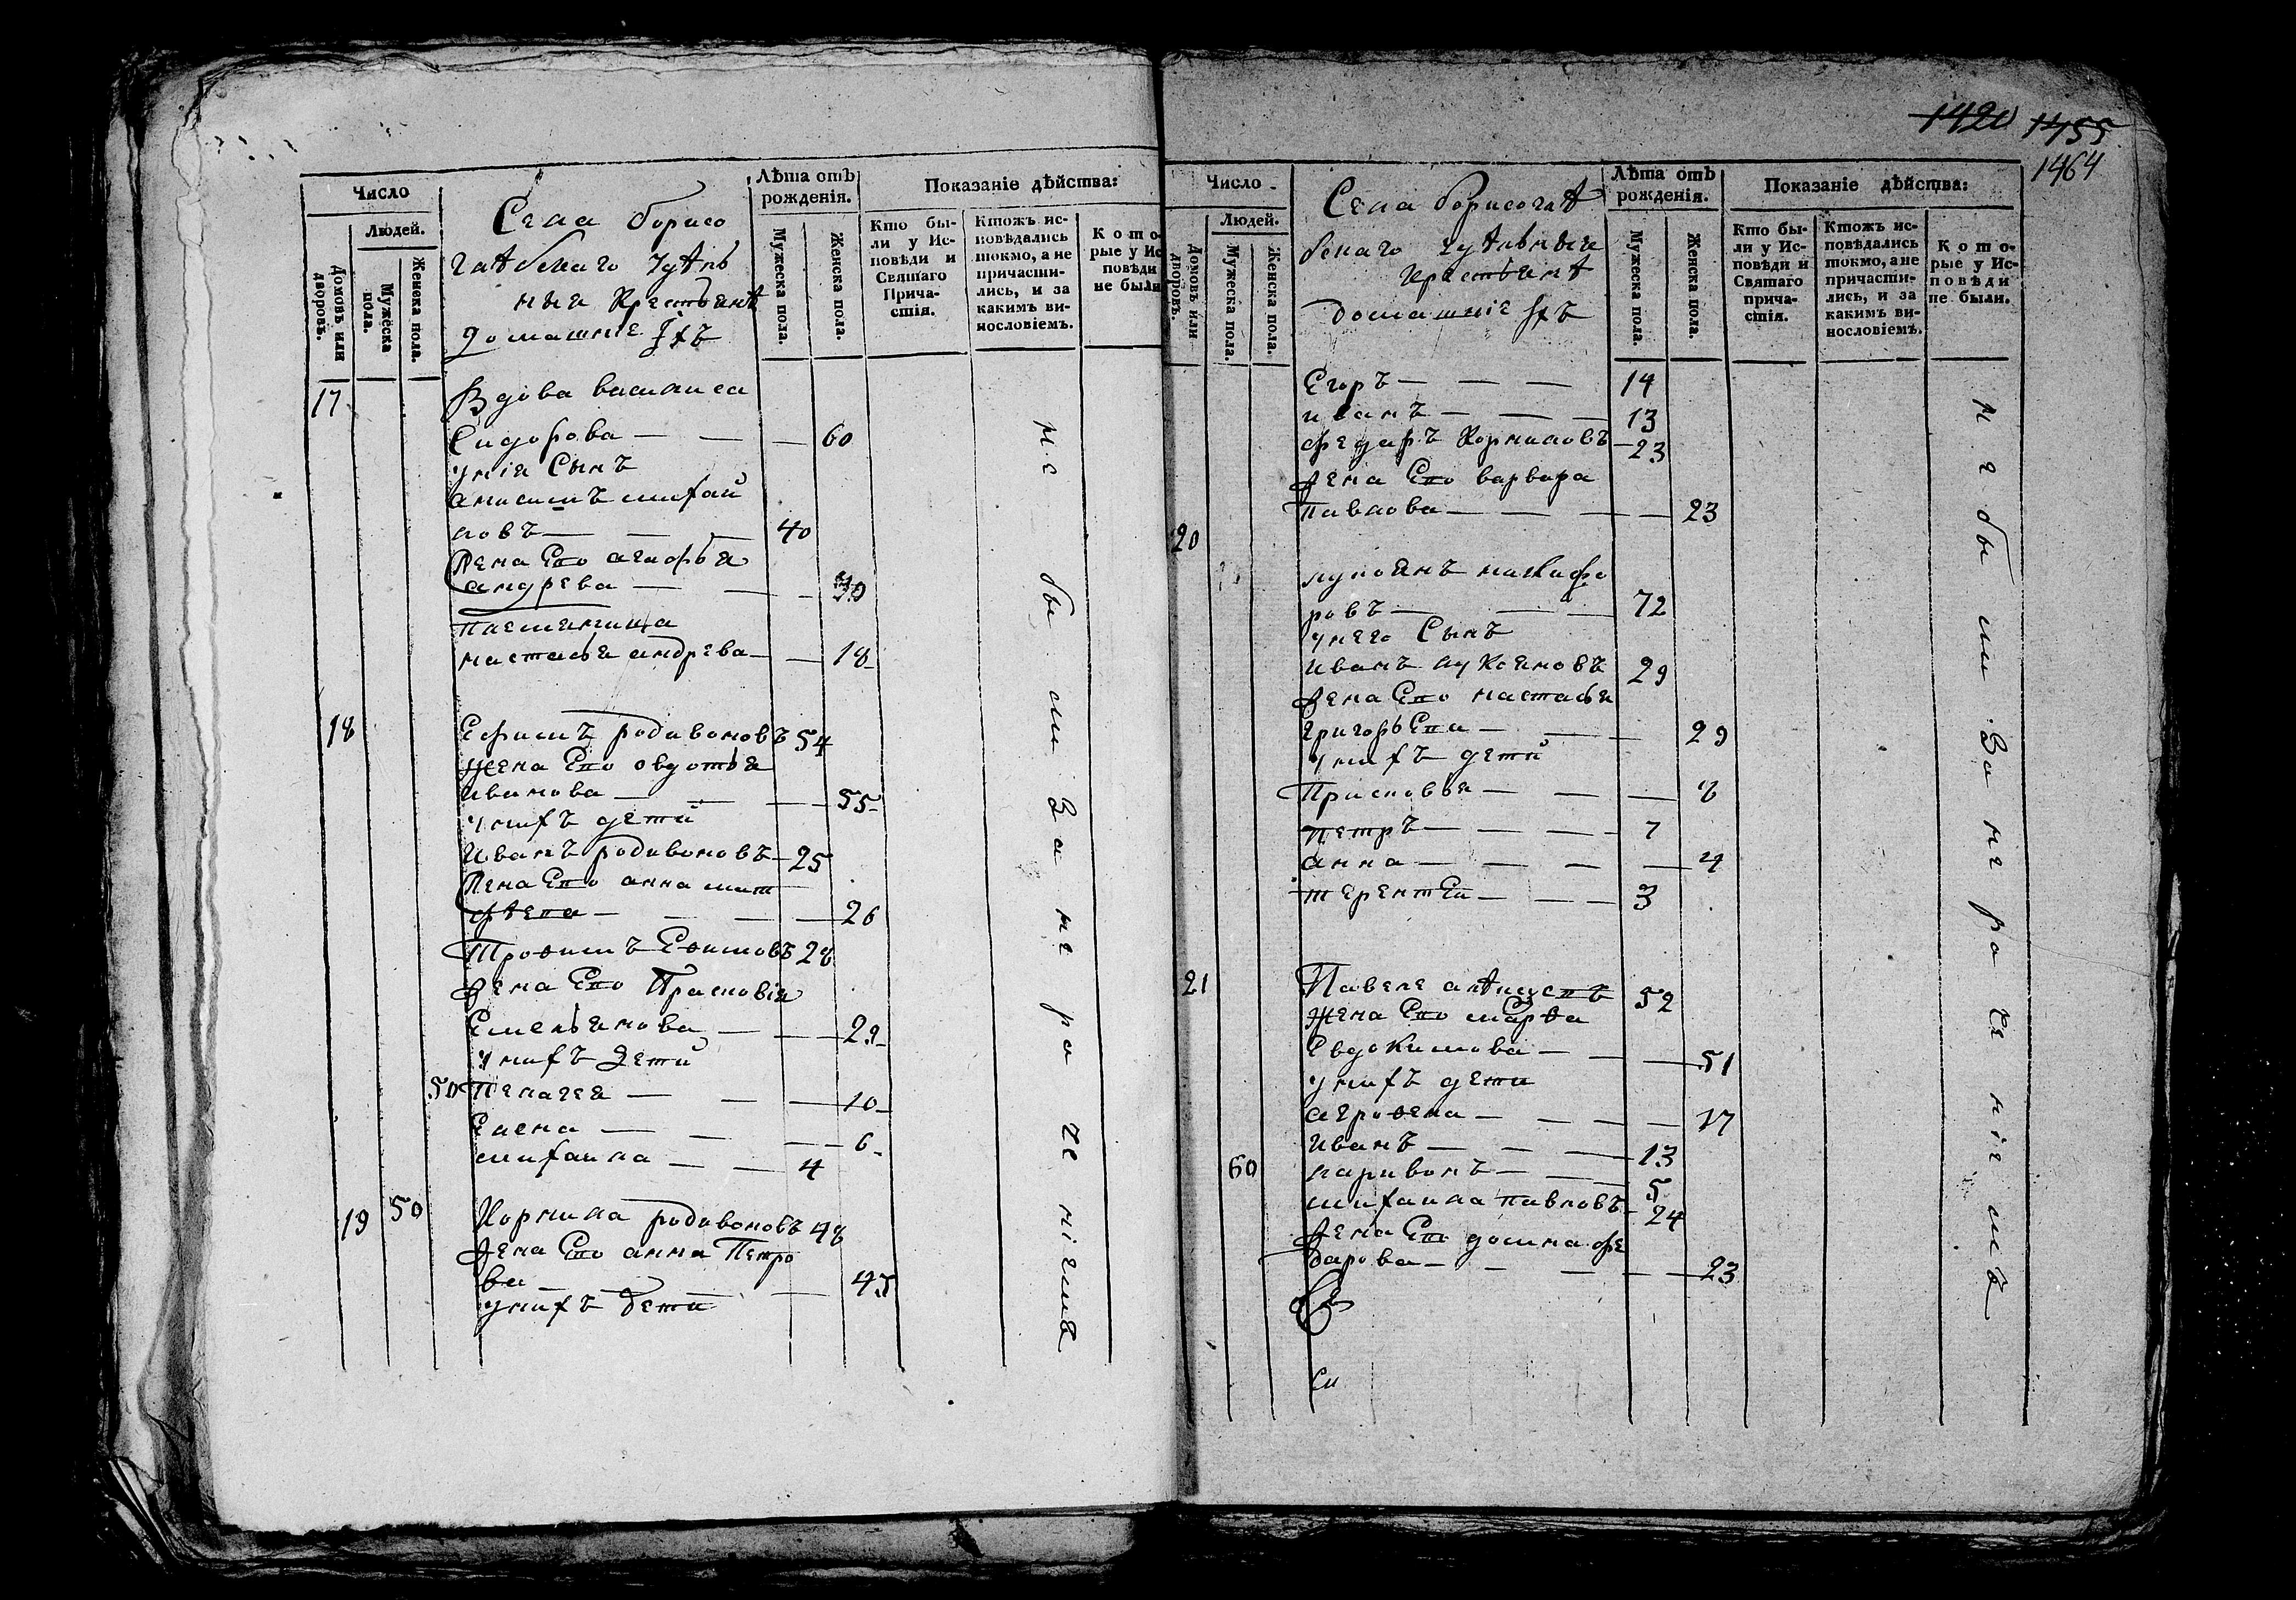 Число
Людей.
Домовъ или дворовъ.
Мужеска пола.
Женска пола.
Села борисо
глѣбскаго удѣль
ныи крестьянѣ
домашніе Ихъ
Лѣта отъ рожденія.
Мужеска пола.
Женска пола.
Показаніе дѣйства:
Кто бы-
ли у Ис-
повѣди и
Святаго
Прича-
стія.
Ктожъ ис-
повѣдались
токмо, а не
причасти-
лись, и за
какимъ ви-
нословіемъ.
Кото-
рые у Ис
повѣди
не были
17 Вдова василиса
Сидорова — — — 60
унія Сынъ
анисимъ михай
ловъ — — — 40
Жена Его агафья
андрева — — — 30
племяница
настасья андрева — — 18
18 Ефимъ родивоновъ 54
жена Его овдотья
иванова — — — 55
унихъ дети
Иванъ родивоновъ — 25
Жена Его анна мит
— — — 26
Трофимъ Ефимовъ 28
жена Его Прасковія
Емельянова — — 29
унихъ Дети
50 Пелагея — — — 10
Елена — — — 6
михаила — — 4
19 50 Корнила родивоновъ 48
жена Его анна Петро
ва — — 45
унихъ дети
не были За нерачениемъ
1420 1455
1464
Число
Людей.
Домовъ или дворовъ.
Мужеска пола.
Женска пола.
Села борисоглѣ
бскаго удѣльные
крестьянѣ
домашніе Ихъ
Лѣта отъ рожденія.
Мужеска пола.
Женска пола.
Показаніе дѣйства:
Кто бы-
ли у Ис-
повѣди и
Святаго
прича-
стія.
Ктожъ ис-
повѣдались
токмо, а не
причасти-
лись, и за
какимъ ви-
нословіемъ.
Кото-
рые у Ис-
повѣди
не были.
Егоръ — — — 14
иванъ — — — 13
федаръ Корниловъ — 23
жена Его варвара
Павлова — — — 23
20
лукоянъ никифо
ровъ — — — 72
унего Сынъ
иванъ лукояновъ 29
жена Его настасья
григорьева — — — 29
унихъ дети
Прасковья — — — 8
петръ — — — 7
анна — — — 4
терентеи — — — 3
21 Павелъ 52
жена Его марфа
Евдокимова — — — 51
унихъ дети
агрофена — — — 17
иванъ — — — 13
60 ларивонъ — — 5
михаила павловъ — 24
жена Его домна фе
дарова — — — 23
не были За нерачениемъ